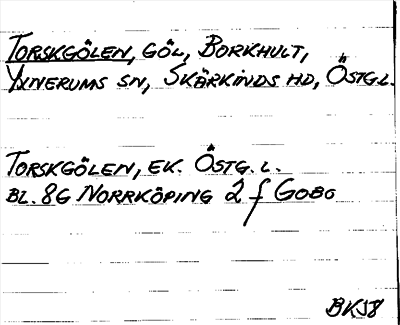 TORSKGÖLEN, GÖL, BORKHULT,
YXNERUMS SN, SKÄRKINDS HD, ÖSTG.L.
TORSKGÖLEN, EK. ÖSTG. L.
BL. 8G NORRKÖPING 2 f GOBO
BKJ8